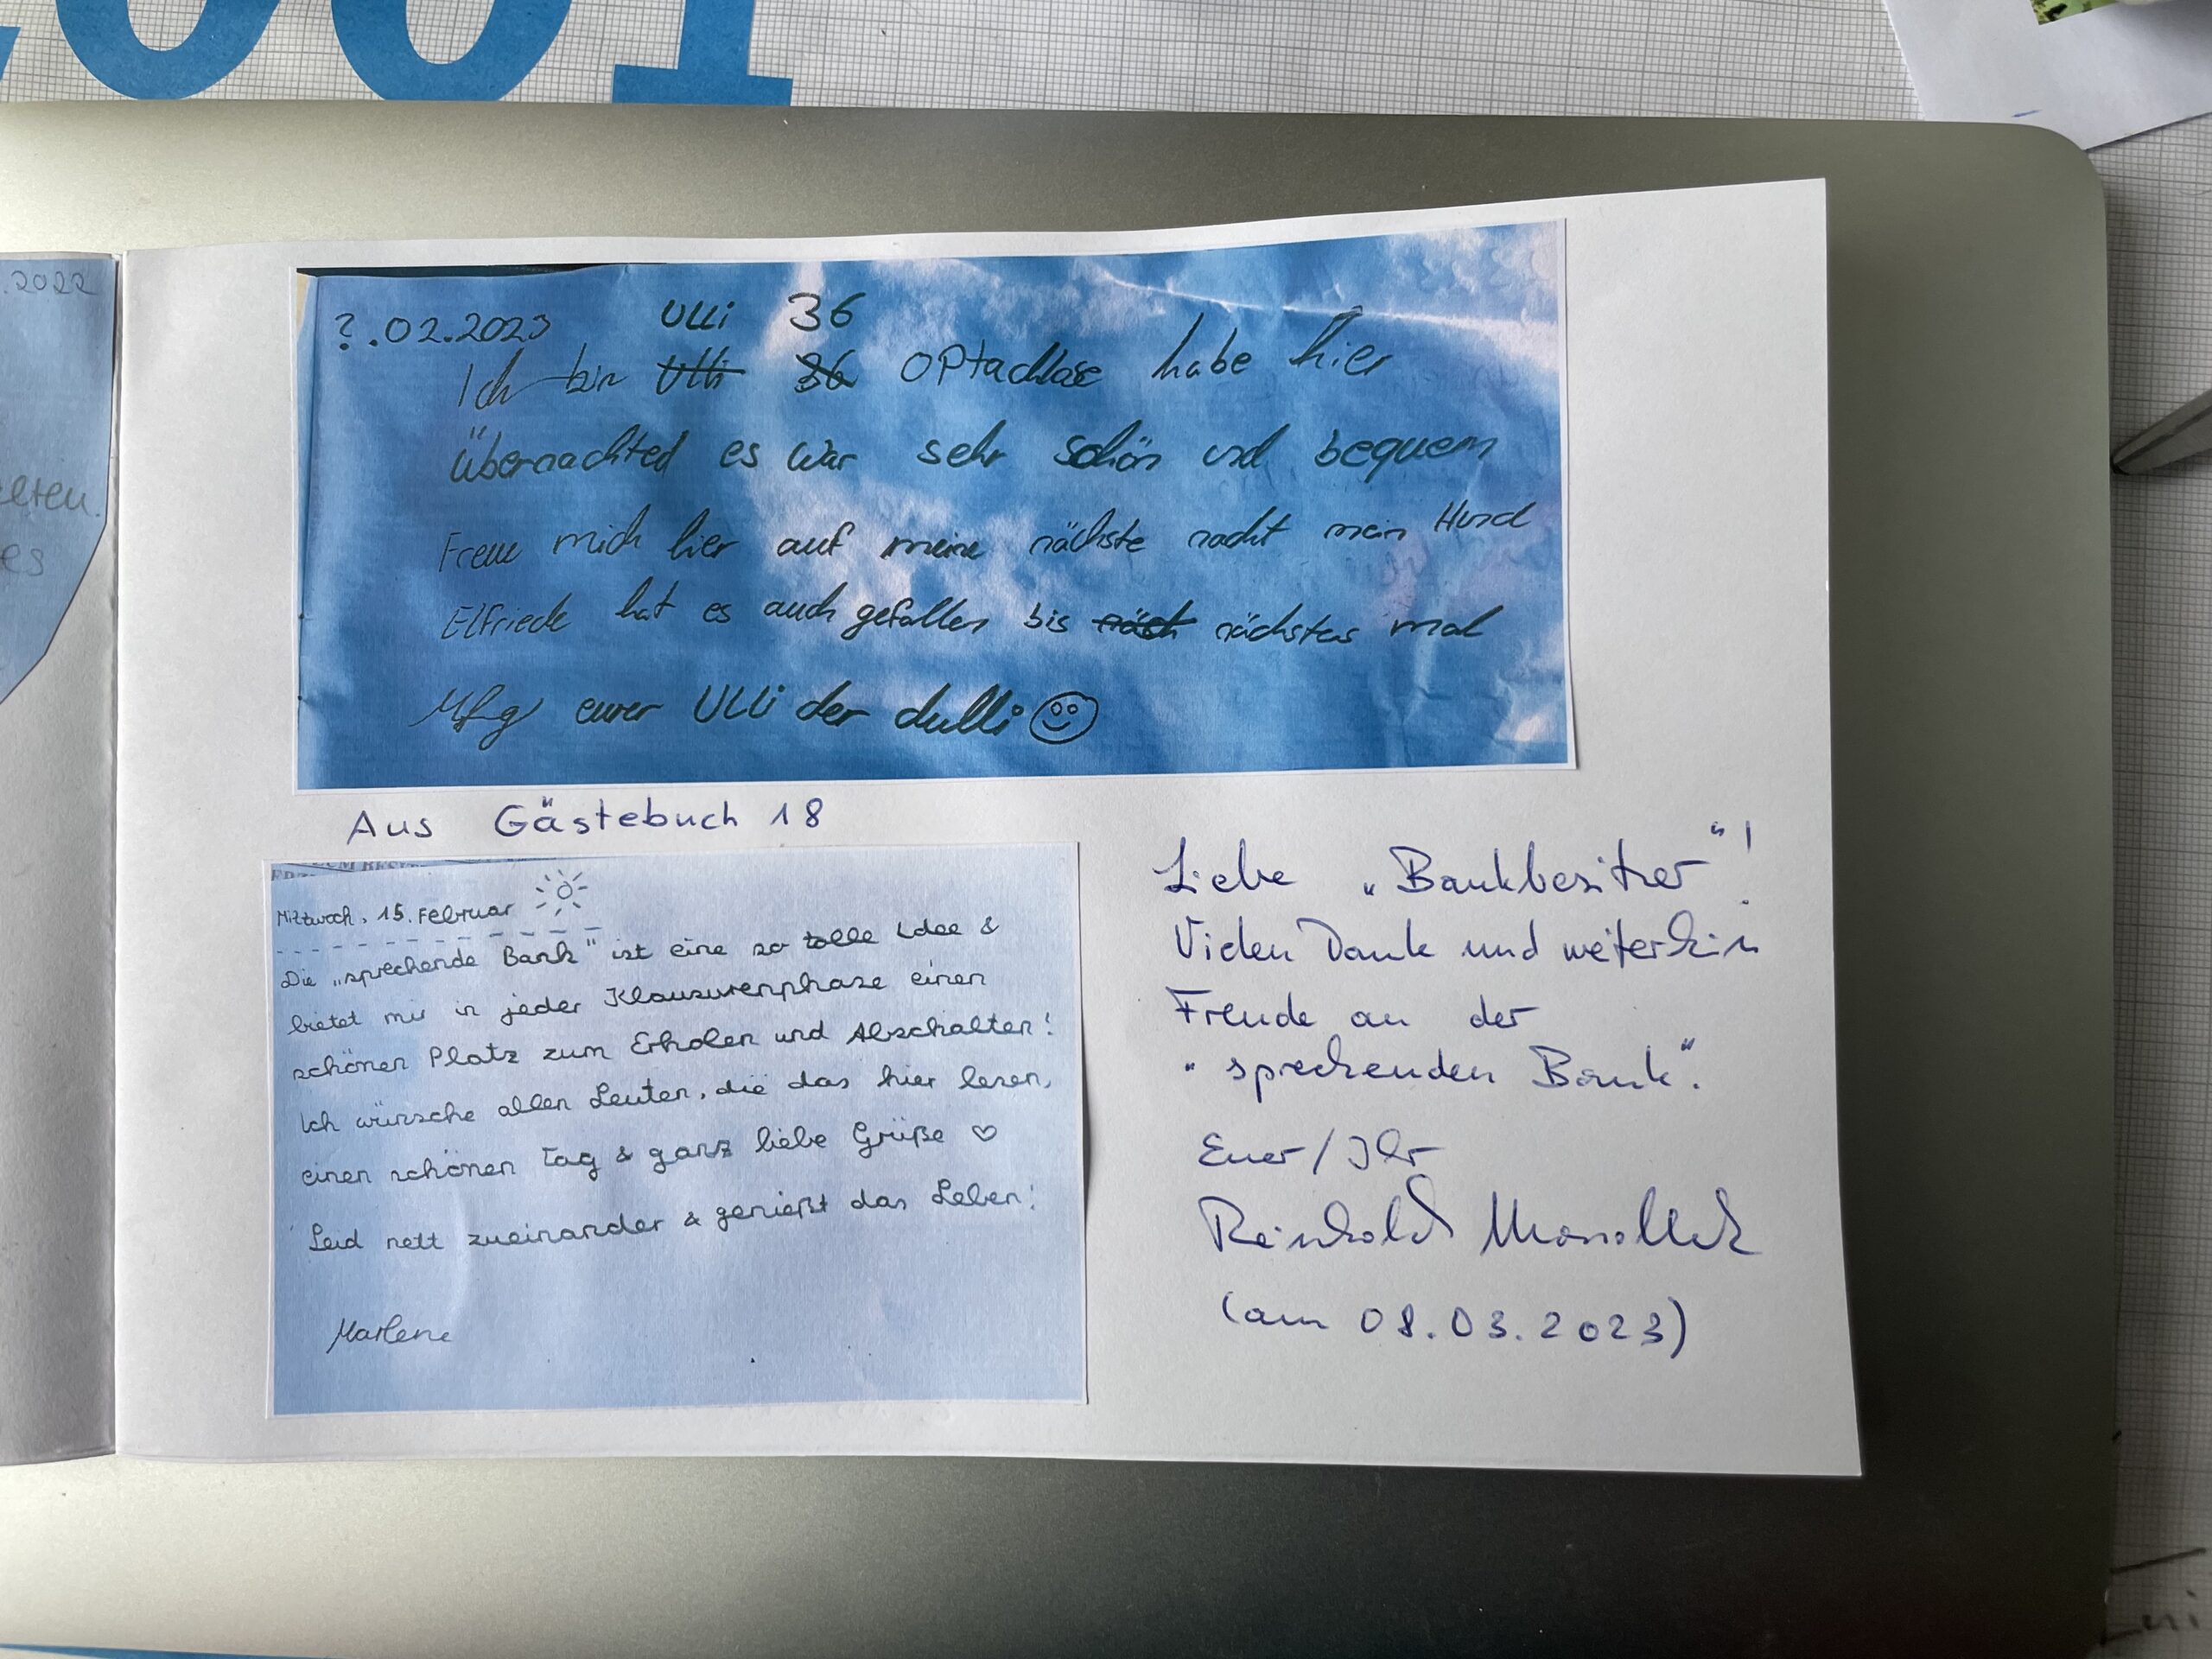 2001
.2022
elten.
es
?.02.2023 Ulli 36
Ich bin Ulli 36 habe hier
Übernachted es war sehr schön und bequem
Freue mich hier auf meine nächste nacht mein Hund
Elfriede hat es auch gefallen bis näch nächstes mal
Mfg eurer Ulli der dulli
Aus Gästebuch 18
Mittwoch, 15. Februar
Die „sprechende Bank" ist eine so tolle Idee &
bietet mir in jeder Klausurenphase einen
schönen Platz zum Erholen und Abschalten!
Ich wünsche allen Leuten, die das hier lesen,
einen schönen Tag & ganz liebe Grüße ♡
Seid nett zueinander & genießt das Leben!
Marlene
Liebe „Bankbesitzer"!
Vielen Dank und weiterhin
Freude an der
"sprechenden Bank".
Euer/Ihr
Reinhold
(am 08.03.2023)